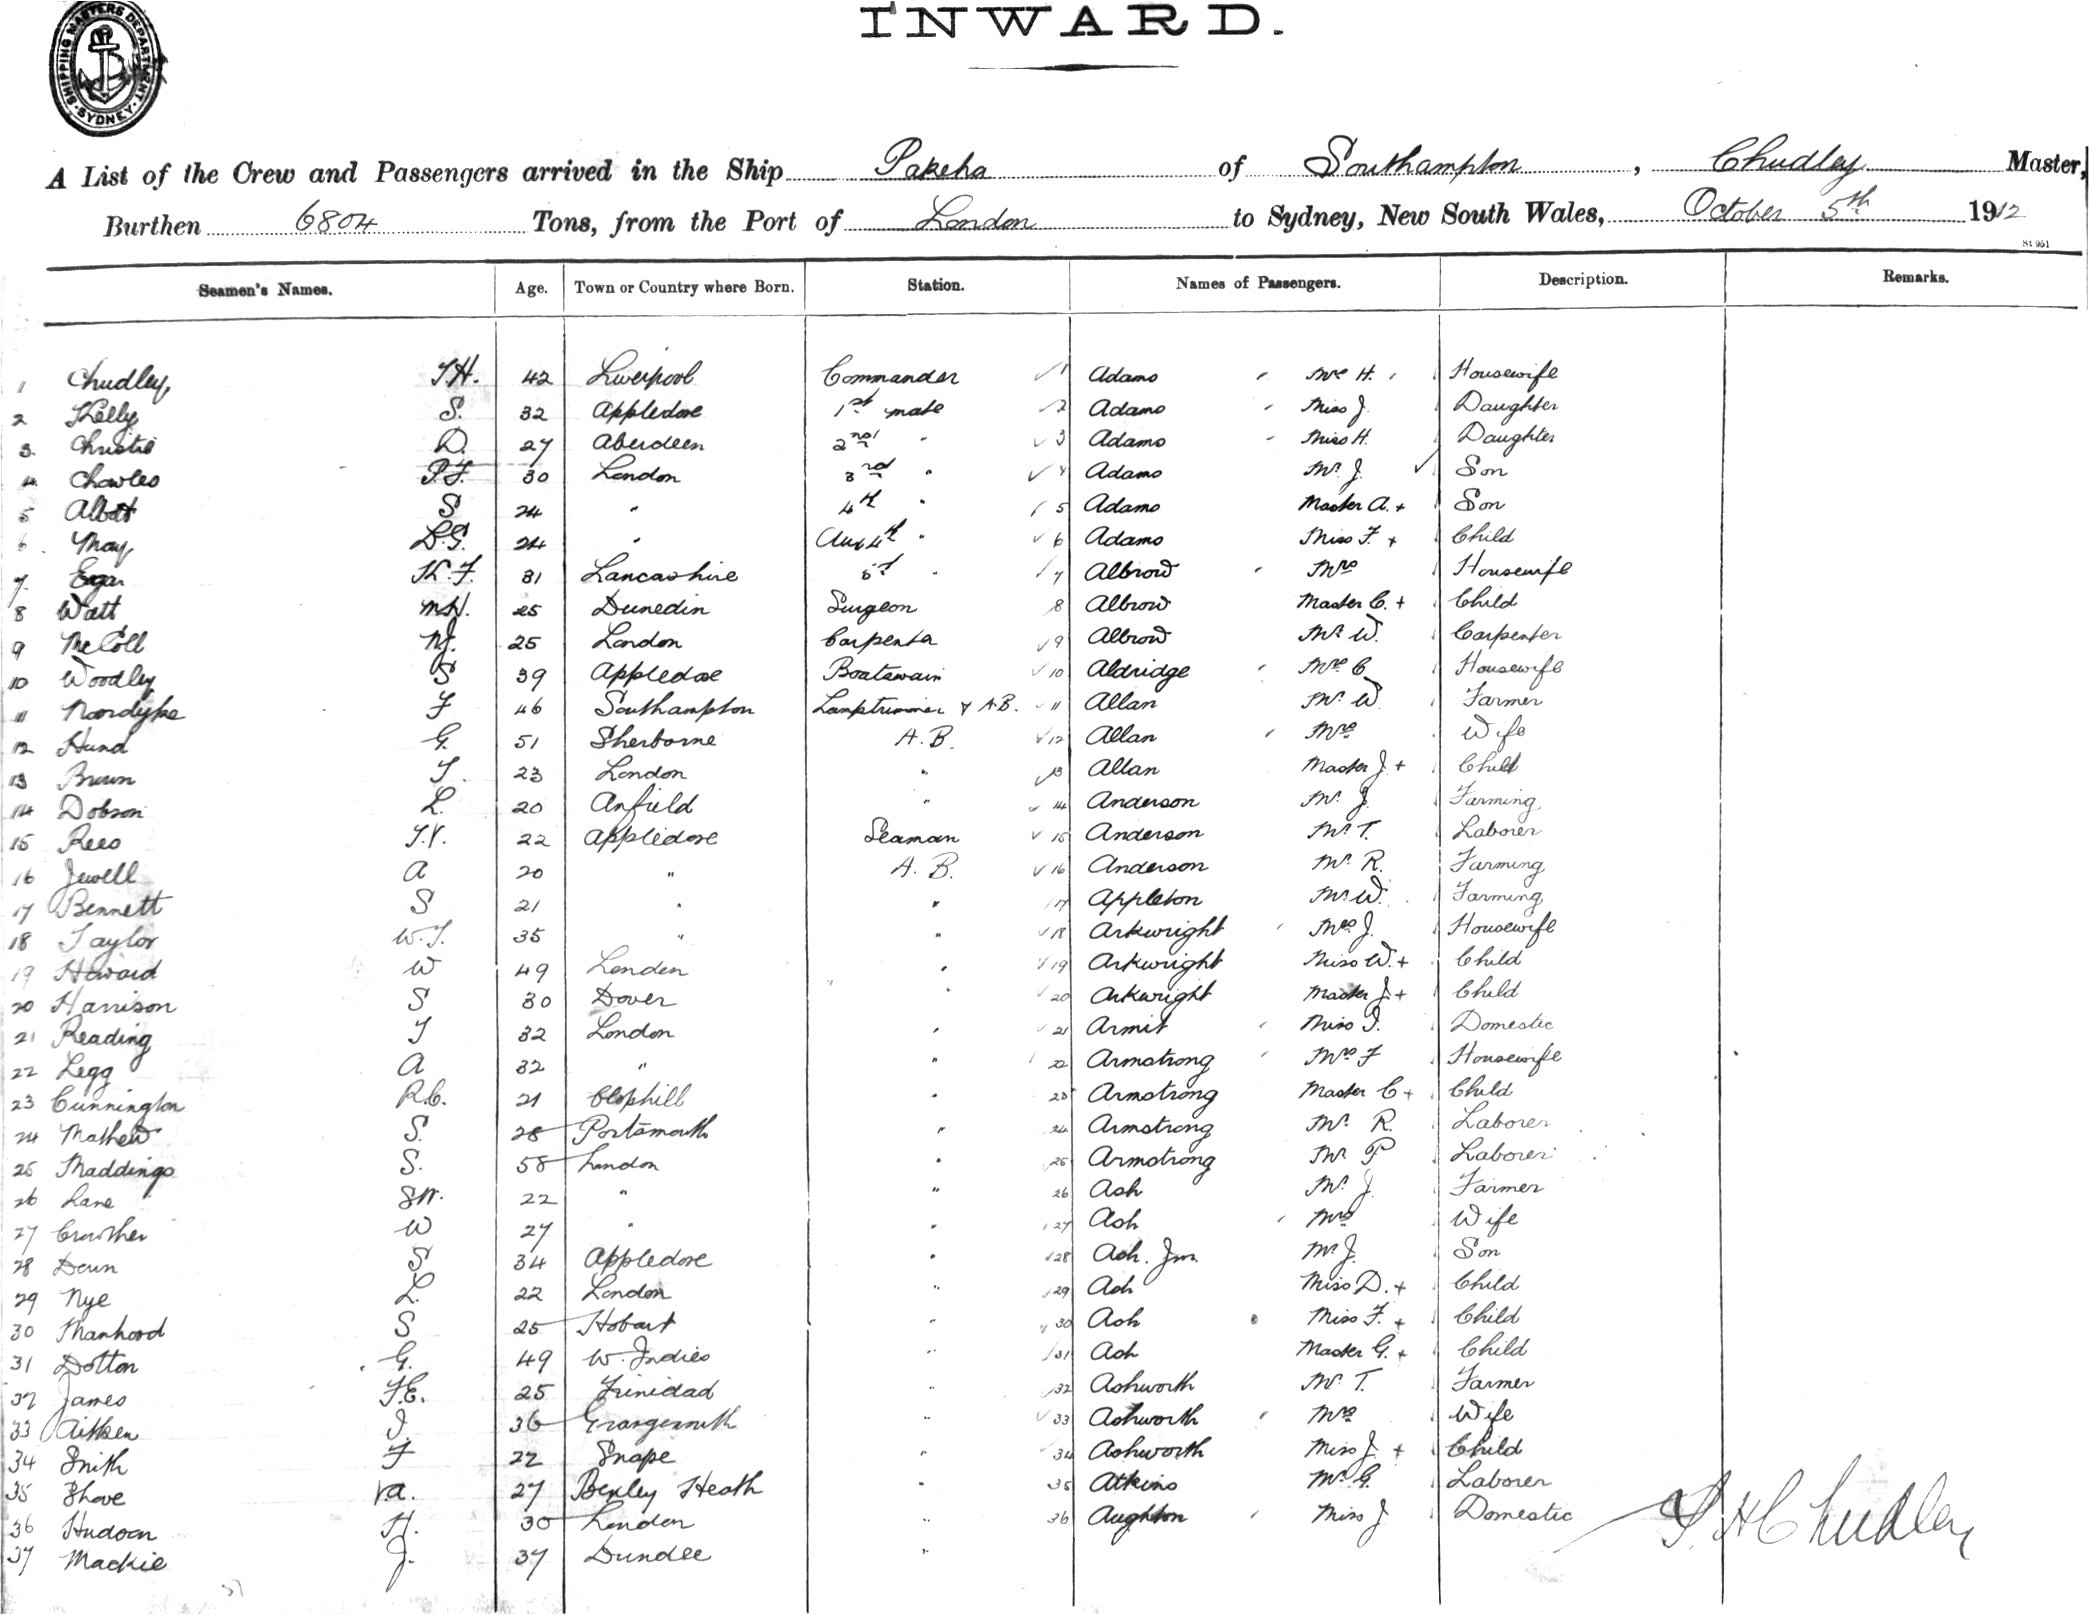 INWARD.
SHIPPING MASTERS DEPARTMENT. SYDNEY.
A List of the Crew and Passengers arrived in the Ship Pakeha of Southampton, Chudley Master,
Burthen 6804 Tons, from the Port of London to Sydney, New South Wales, October 5th 1912
St 951
Seamen's Names. Age. Town or Country where Born. Station. Names of Passengers. Description. Remarks.
1 Chudley, T.H. 42 Liverpool Commander 1 Adams Mrs H. Housewife
2 Kelly S. 32 Appledore 1st mate 2 Adams Miss J. Daughter
3. Christie D. 27 Aberdeen 2nd " 3 Adams Miss H. Daughter
4. Chowles P.F. 30 London 3rd " 4 Adams Mr. J. Son
5 S 24 " 4th " 5 Adams Master A. + Son
6 May L.G. 24 " Aux 4th " 6 Adams Miss F. + Child
7. 31 Lancashire 5th " 7 Albrow Mrs Housewife
8 Watt M.W. 25 Dunedin Surgeon 8 Albrow Master C. + Child
9 McColl N.J. 25 London Carpenter 9 Albrow Mr. W. Carpenter
10 Woodley S 39 Appledore Boatswain 10 Aldridge Mrs C Housewife
11 Noordyke F 46 Southampton Lamptrimmer & A.B. 11 Allan Mr. W. Farmer
12 Hund G. 51 Sherborne A.B. 12 Allan Mrs Wife
13 Brown T. 23 London " 13 Allan Master J. + Child
14 Dobson L. 20 Anfield " 14 Anderson Mr. J. Farming
15 Rees T.V. 22 Appledore Seaman 15 Anderson Mr. T. Laborer
16 Jewell A 20 " A.B. 16 Anderson Mr. R. Farming
17 Bennett S 21 " " 17 Appleton Mr. W. Farming
18 Taylor W.T. 35 " " 18 Arkwright Mrs J. Housewife
19 Howard W 49 London " 19 Arkwright Miss W. + Child
20 Harrison S 30 Dover " 20 Arkwright Master J. + Child
21 Reading T 32 London 21 Armit Miss I. Domestic
22 Legg A 32 " " 22 Armstrong Mrs F Housewife
23 Cunnington R.C. 21 Clophill " 23 Armstrong Master C + Child
24 Mathew S. 28 Portsmouth " 24 Armstrong Mr. R. Laborer
25 Maddings S. 58 London " 25 Armstrong Mr. P Laborer
26 Lane S.W. 22 " " 26 Ash Mr. J. Farmer
27 Crowther W 27 " " 27 Ash Mrs Wife
28 Deun S 34 Appledore " 28 Ash. Jnr. Mr. J. Son
29 Nye L. 22 London " 29 Ash Miss D. + Child
30 Manhood S 25 Hobart " 30 Ash Miss F. + Child
31 Dotton G. 49 W. Indies " 31 Ash Master G. + Child
32 James F.E. 25 Trinidad " 32 Ashworth Mr. T. Farmer
33 Aitken J. 36 Grangemouth " 33 Ashworth Mrs Wife
34 Smith F 22 Snape " 34 Ashworth Miss J. + Child
35 Shove 27 Bexley Heath " 35 Atkins Mr. G. Laborer
36 Hudson H. 30 London " 36 Aughton Miss J Domestic
37 Mackie J. 37 Dundee "
T. H Chudley
37